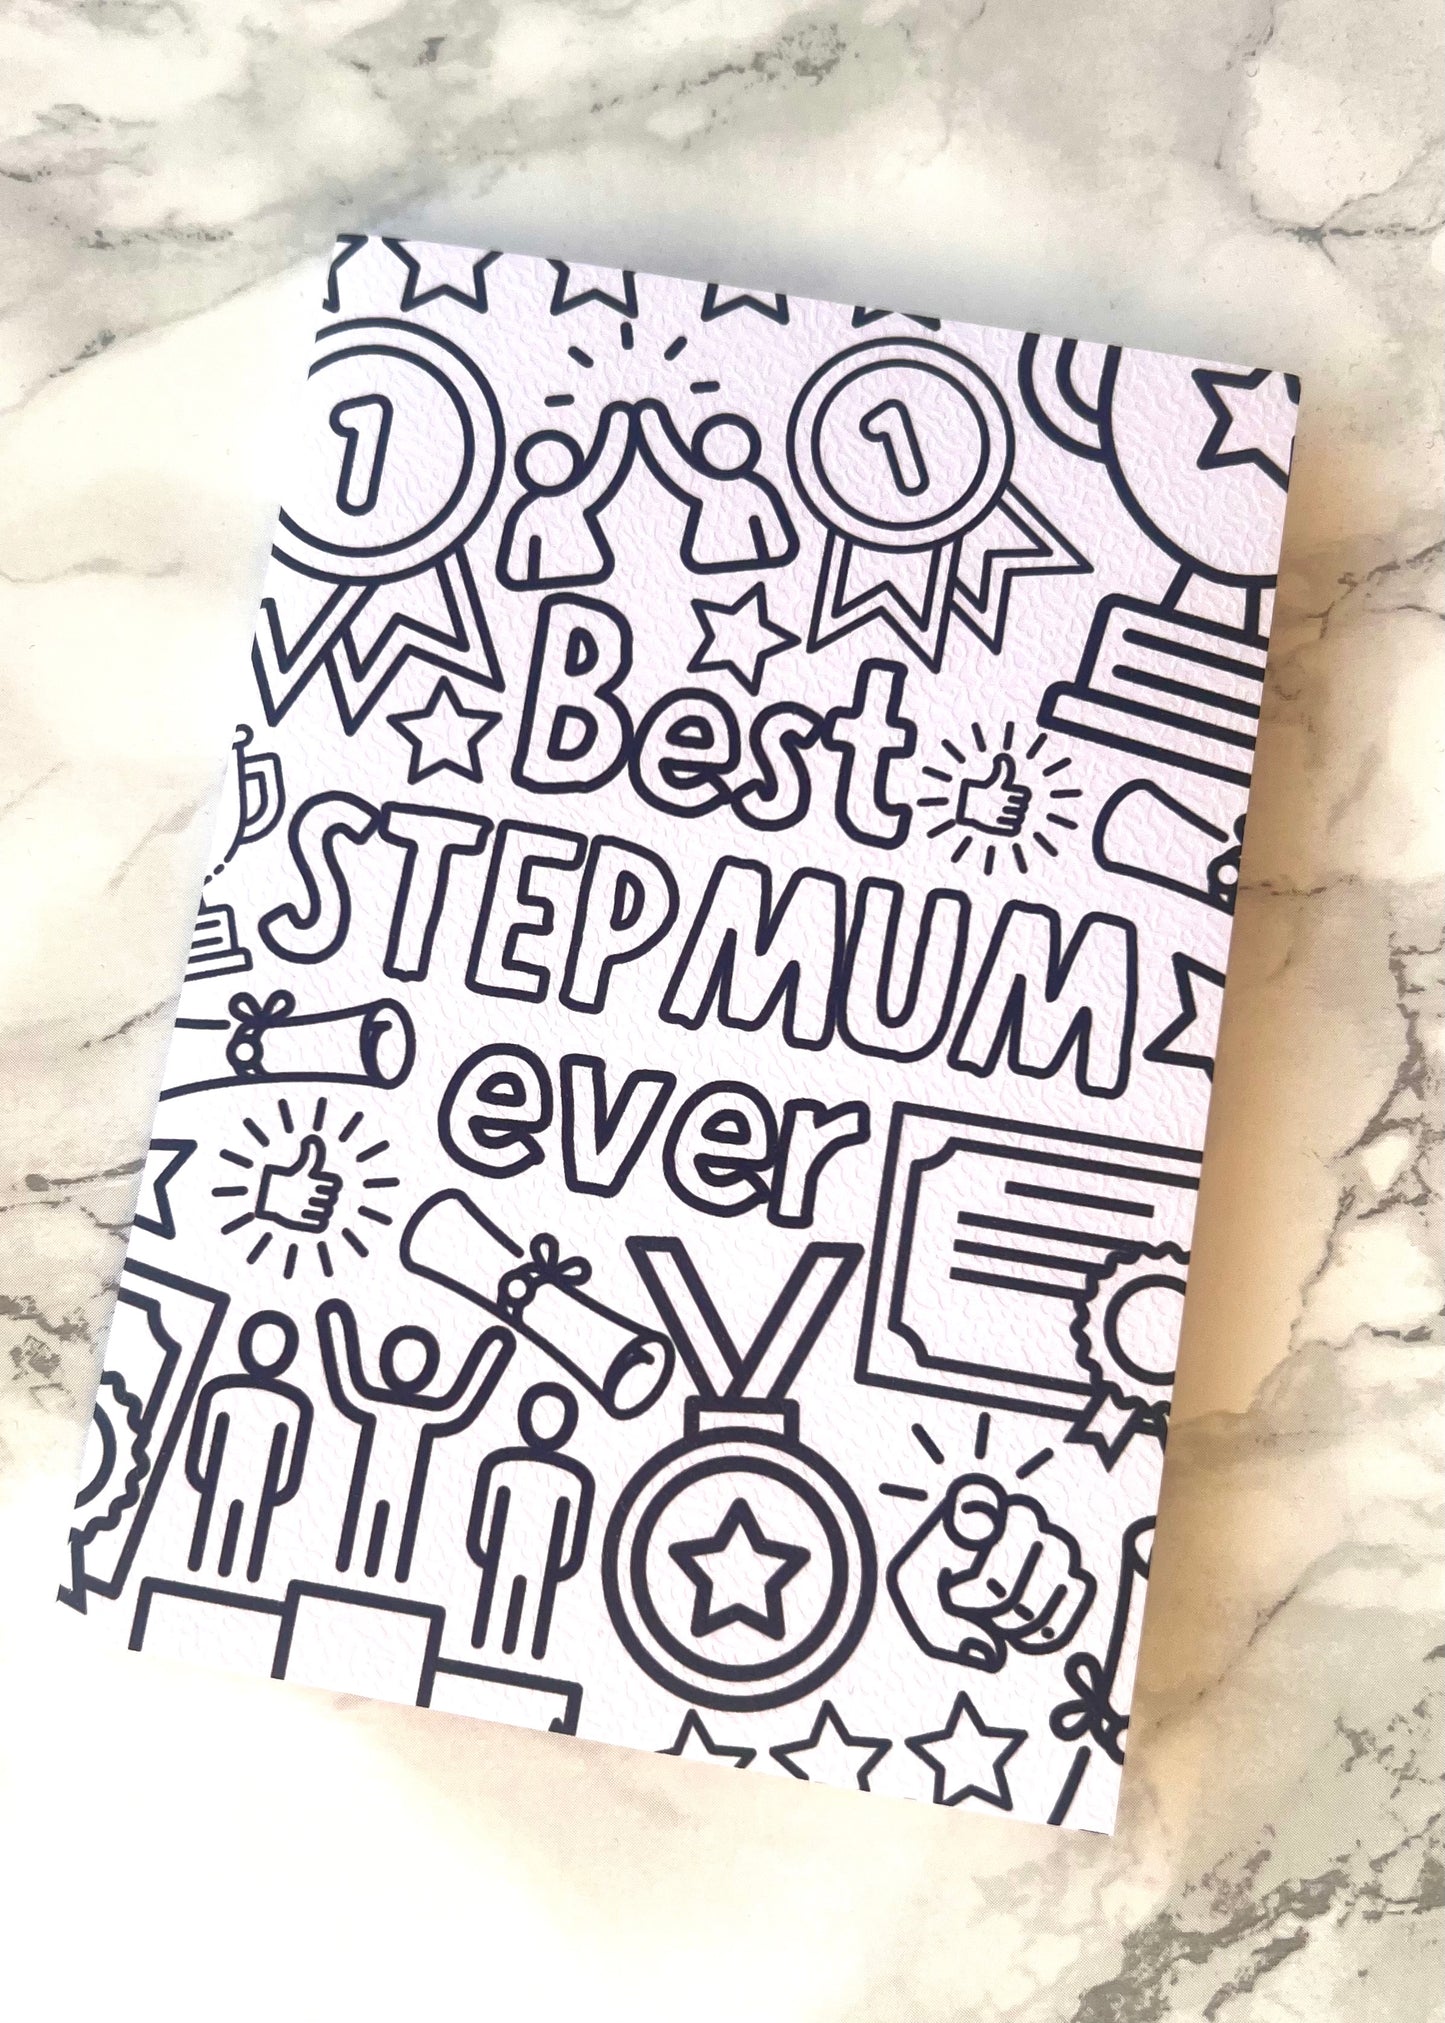 1 1
Best
STEPMUM
ever